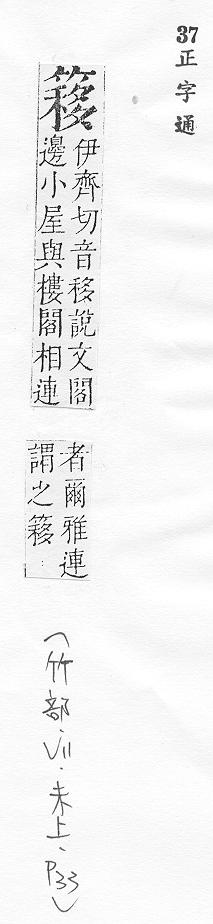 37正字通
簃
伊齊切音移說文閣
邊小屋與樓閣相連
者爾雅連
謂之簃
(竹部·VII·未上·P33)